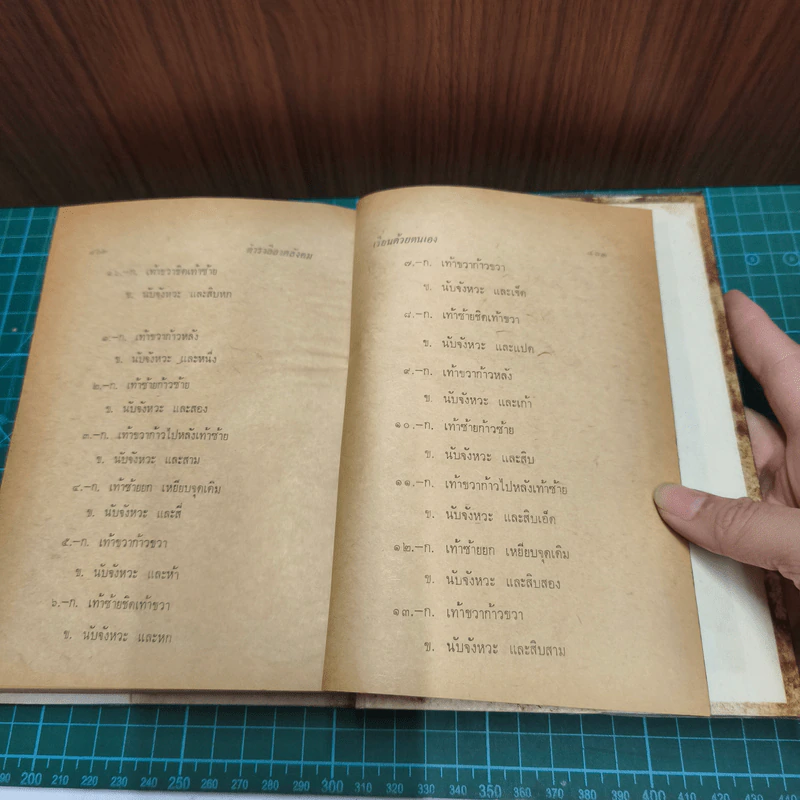 ตำราลีลาศสังคม
๑๖.-ก. เท้าขวาชิดเท้าซ้าย
ข. นับจังหวะ และสิบหก
๑.-ก. เท้าขวาก้าวหลัง
ข. นับจังหวะ และหนึ่ง
๒.-ก. เท้าซ้ายก้าวซ้าย
ข. นับจังหวะ และสอง
๓.-ก. เท้าขวาก้าวไปหลังเท้าซ้าย
ข. นับจังหวะ และสาม
๔.-ก. เท้าซ้ายยก เหยียบจุดเดิม
ข. นับจังหวะ และสี่
๕.-ก. เท้าขวาก้าวขวา
ข. นับจังหวะ และห้า
๖.-ก. เท้าซ้ายชิดเท้าขวา
ข. นับจังหวะ และหก
เรียนด้วยตนเอง
๗.-ก. เท้าขวาก้าวขวา
ข. นับจังหวะ และเจ็ด
๘.-ก. เท้าซ้ายชิดเท้าขวา
ข. นับจังหวะ และแปด
๙.-ก. เท้าขวาก้าวหลัง
ข. นับจังหวะ และเก้า
๑๐.-ก. เท้าซ้ายก้าวซ้าย
ข. นับจังหวะ และสิบ
๑๑.-ก. เท้าขวาก้าวไปหลังเท้าซ้าย
ข. นับจังหวะ และสิบเอ็ด
๑๒.-ก. เท้าซ้ายยก เหยียบจุดเดิม
ข. นับจังหวะ และสิบสอง
๑๓.-ก. เท้าขวาก้าวขวา
ข. นับจังหวะ และสิบสาม
190 200 210 220 230 240 250 260 270 280 290 300 310 320 330 340 350 360 370 380 390 400 410 420 430